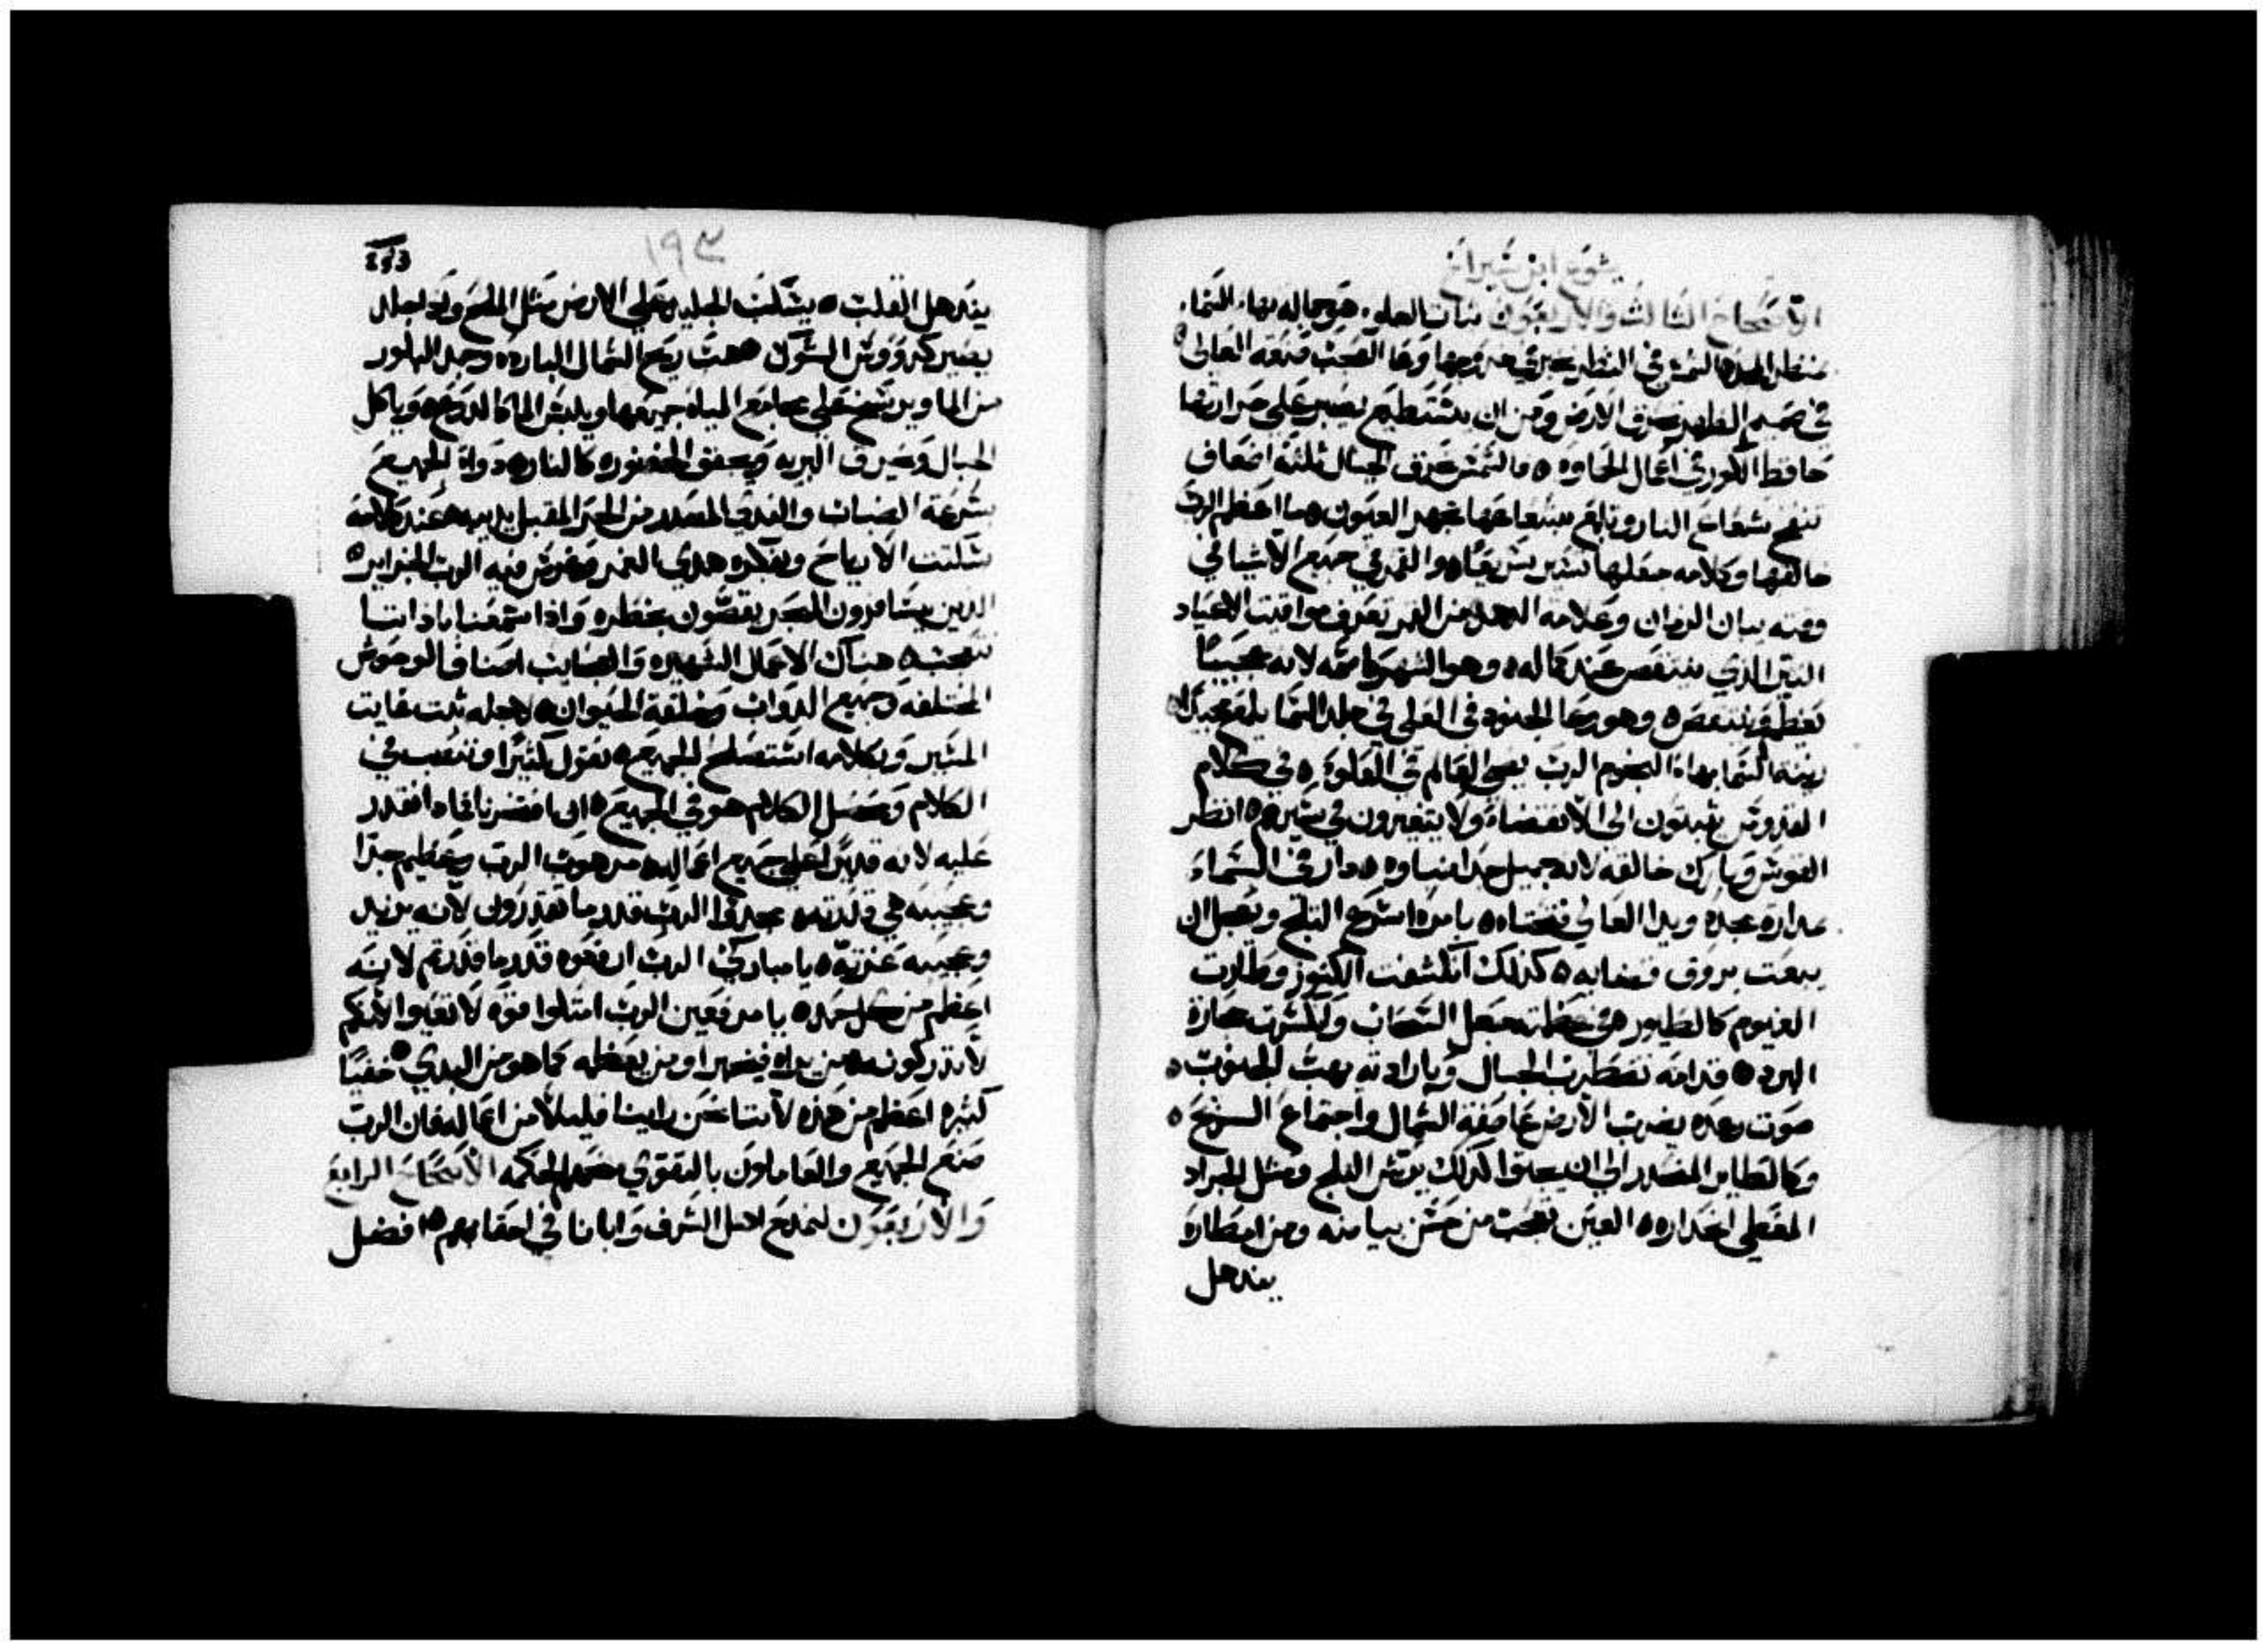 يشوع ابن شيراخ
الاصحاح الثالث والاربعون ثبات العلو هو جماله بهاء السماء
منظر المجد الشمس في النظر تخبر في خروجها وعا العجب صنعة العالي
في صميم الظهر تحرق الارض ومن ان يستطيع يصبر على حرارتها
حافظ الكور في اعمال الحماوه ما الشمس تحرق الجبال ثلثة اضعاف
تنفخ شعاع النار وتلمع بشعاعها تجهر العيون ما اعظم الرب
خالقها وكلامه جعلها تسير سريعًا والقمر في جميع الاشيا في
وقته بيان الزمان وعلامه الدهر من القمر تعرف مواقيت الاعياد
النير الذي ينتقص عند كماله وهو الشهر كاسمه لانه عجيبًا
يعظم وينتقص وهو وعا الجنود في العلي في جلد السما يلمع مجيدًا
زينة السما بهاء النجوم الرب يضي العالم في العلو في كلام
القدوس يثبتون الي الانقضاء ولا يتغيرون في سيرهم انظر
القوس وبارك خالقه لانه جميل جدا ضياوه دار في السماء
مداره مجده ويدا العالي فتحتاه بامره اسرع الثلج ويعجل ان
يبعت بروق قضايه كذلك انكشفت الكنوز وطارت
الغيوم كالطيور في عظمته جعل السحاب وانكسرت حجارة
البرد قدامه تضطرب الجبال وبارادته تهب الجنوب
صوت رعده يضرب الارض عاصفة الشمال واجتماع الريح
وكالطاير المنحدر الي ان يجلوا كذلك يرش الثلج ومثل الجراد
المغطي انحداره العين تعجب من حسن بياضه ومن امطاره
يندهل
١٩٣
يندهل القلب يسكب الجليد علي الارض مثل الملح واذا جلد
يصير كرووس الشوك هبت ريح الشمال البارده وجمد البلور
من الما ويرتسخ علي مجامع المياه جميعها ويلبس الما كالدرع وياكل
الجبال ويحرق البريه ويجفف الخضوره كالنار دواء الجميع
بسرعة الضباب والندي المنحدر من الحر المقبل يذيبه عند كلامه
سكتت الارياح وبفكره هدي الغمر وغرس فيه الرب الجزاير
الذين يسافرون البحر يقصون بخطره واذا سمعنا باذاننا
نتعجب هناك الاعمال الشهيره والعجايب اصناف الوحوش
المختلفه وجميع الدواب وخلقة الحيوان لاجله ثبت غاية
المسير وبكلامه استصلح الجميع نقول كثيرًا ونتعب في
الكلام ومحصل الكلام هو في الجميع اذا افتخرنا بماذا نقدر
عليه لانه قديرًا علي جميع اعماله مرهوب الرب وعظيم جدًا
وعجيبه هي قدرته مجدوا الرب قدر ما تقدرون لانه يزيد
وعجيبه عزته يا مباركي الرب ارفعوه قدر ما قدرتم لانه
اعظم من كل حمد يا مرفعين الرب امتلوا قوه لا تعيوا لانكم
لا تدركونه من يراه فيخبر او من يعظمه كما هو من البدي خفيًا
كثيره اعظم من هذه لاننا نحن راينا قليلًا من اعماله فان الرب
صنع الجميع والعاملون بالتقوي منحهم الحكمه الاصحاح الرابع
والاربعون لنمدح اهل الشرف وابانا في احقابهم افضل